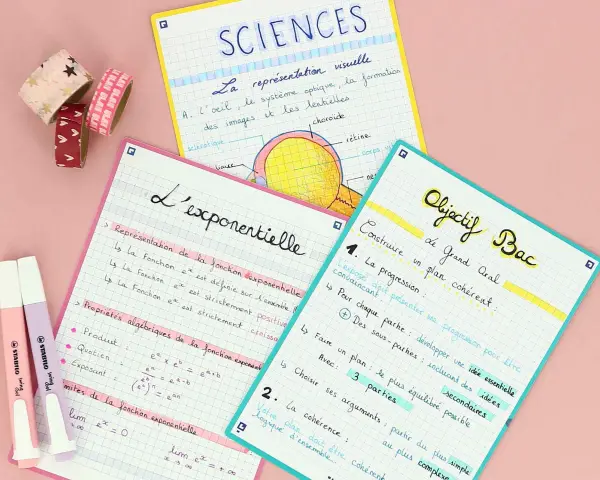 SCIENCES
La représentation visuelle
A. L'oeil : le système optique, la formation
des images et les lentilles
choroïde
rétine
L'exponentielle
> Représentation de la fonction exponentielle
↳ La fonction eˣ est définie sur l'ensemble
↳ La fonction eˣ est strictement positive
↳ La fonction eˣ est strictement
> Propriétés algébriques de la fonction
Produit : eᵃ × eᵇ = eᵃ⁺ᵇ
Quotien : eᵃ/eᵇ = eᵃ⁻ᵇ
Exposant : (eᵃ)ᵇ = eᵃˣᵇ
de la fonction exponentielle
lim eˣ = 0
lim eˣ = +∞
Objectif Bac
Le Grand Oral
Construire un plan cohérent :
1. La progression :
progression pour être
convaincant
↳ Pour chaque partie : développer une idée essentielle
+ Des sous-parties : incluant des idées
secondaires
↳ Faire un plan : le plus équilibré possible
Avec : 3 parties
↳ Choisir ses arguments : partir du plus simple
au plus complexe
2. La cohérence :
plan doit être cohérent
logique d'ensemble
STABILO swing cool
STABILO swing cool